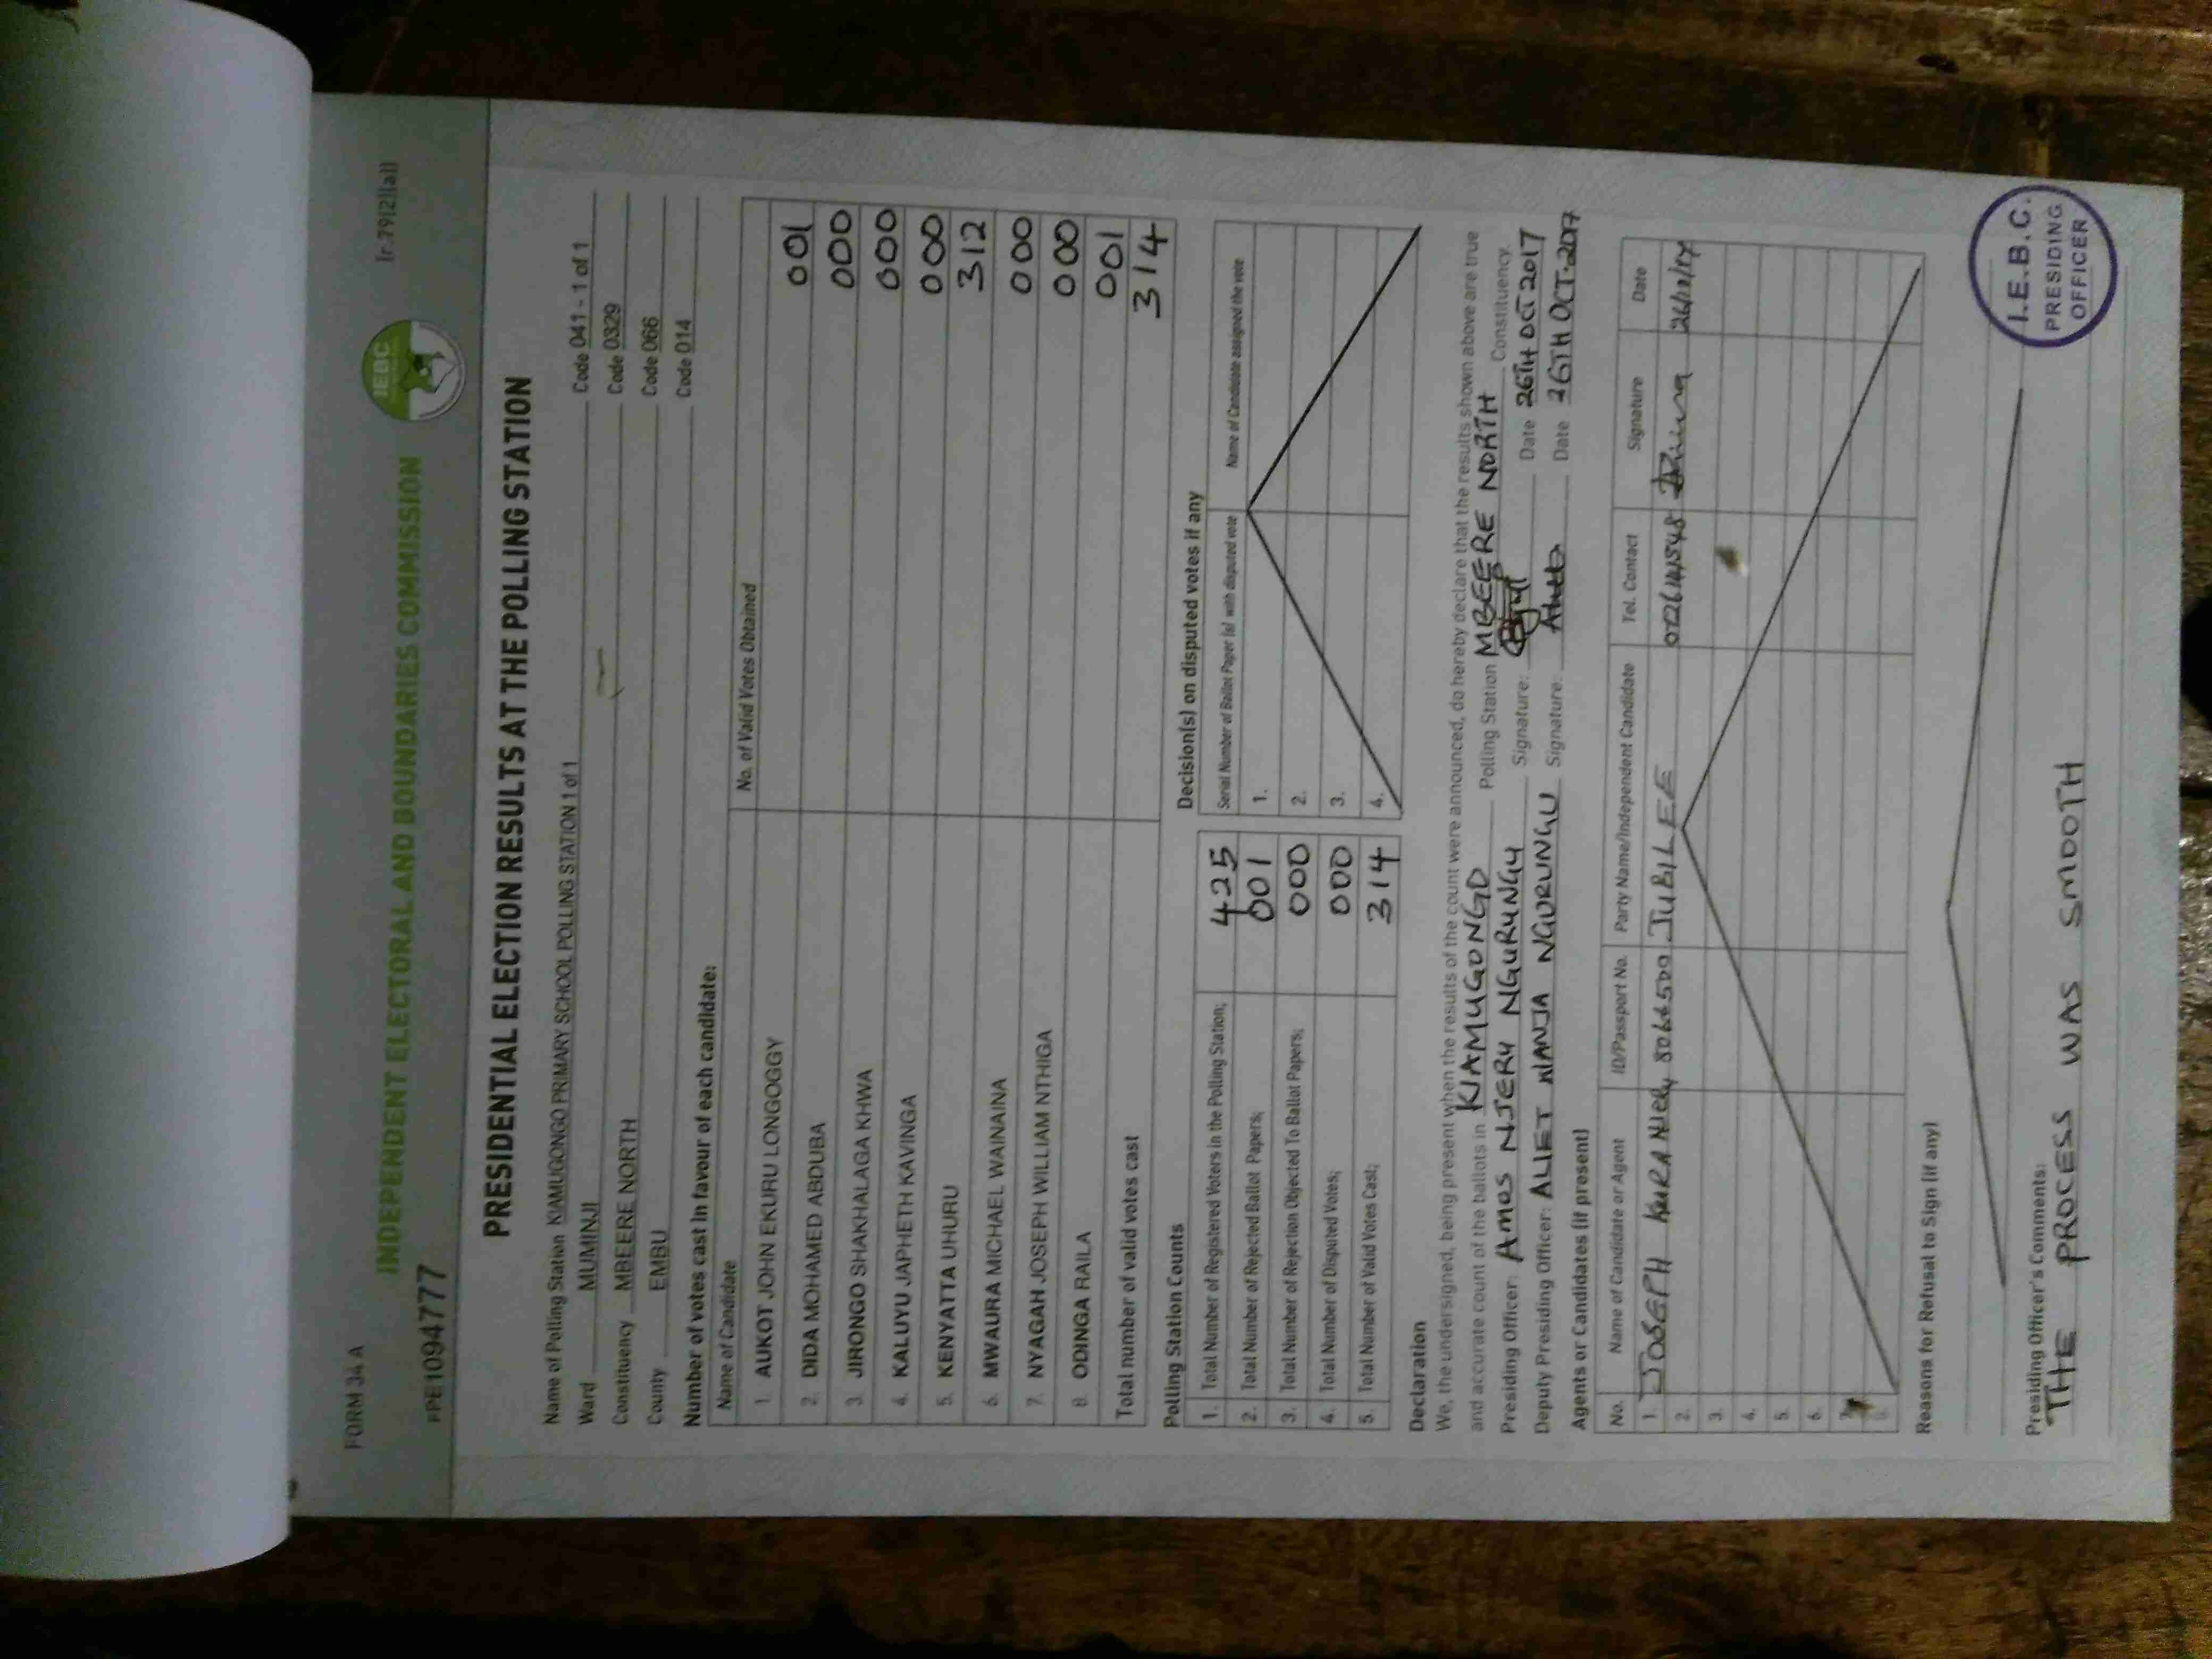 FORM 34 A
[r.79(2)(a)]
INDEPENDENT ELECTORAL AND BOUNDARIES COMMISSION
IEBC
PPE1094777
PRESIDENTIAL ELECTION RESULTS AT THE POLLING STATION
Name of Polling Station KIAMUGONGO PRIMARY SCHOOL POLLING STATION 1 of 1 Code 041 - 1 of 1
Ward MUMINJI Code 0329
Constituency MBEERE NORTH Code 066
County EMBU Code 014
Number of votes cast in favour of each candidate:
Name of Candidate No. of Valid Votes Obtained
1. AUKOT JOHN EKURU LONGOGGY 001
2. DIDA MOHAMED ABDUBA 000
3. JIRONGO SHAKHALAGA KHWA 000
4. KALUYU JAPHETH KAVINGA 000
5. KENYATTA UHURU 312
6. MWAURA MICHAEL WAINAINA 000
7. NYAGAH JOSEPH WILLIAM NTHIGA 000
8. ODINGA RAILA 001
Total number of valid votes cast 314
Polling Station Counts
1. Total Number of Registered Voters in the Polling Station; 425
2. Total Number of Rejected Ballot Papers; 001
3. Total Number of Rejection Objected To Ballot Papers; 000
4. Total Number of Disputed Votes; 000
5. Total Number of Valid Votes Cast; 314
Decision(s) on disputed votes if any
Serial Number of Ballot Paper (s) with disputed vote Name of Candidate assigned the vote
1.
2.
3.
4.
Declaration
We, the undersigned, being present when the results of the count were announced, do hereby declare that the results shown above are true
and accurate count of the ballots in KIAMUGONGO Polling Station MBEERE NORTH Constituency.
Presiding Officer: AMOS NJERU NGURUNGU Signature: Date 26TH OCT 2017
Deputy Presiding Officer: ALIET WANJA NGURUNGU Signature: Date 26TH OCT-2017
Agents or Candidates (if present)
No. Name of Candidate or Agent ID/Passport No. Party Name/Independent Candidate Tel. Contact Signature Date
1. JOSEPH 8066500 JUBILEE 26/10/17
2.
3.
4.
5.
6.
7.
8.
Reasons for Refusal to Sign (if any)
Presiding Officer's Comments:
THE PROCESS WAS SMOOTH
I.E.B.C.
PRESIDING
OFFICER